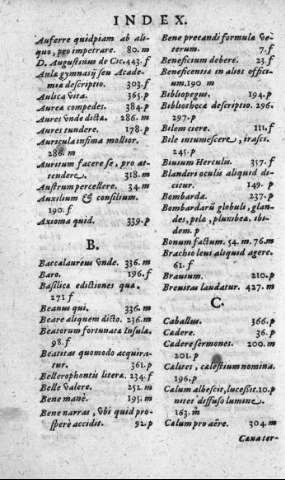 INDEX.
Auferre quidpiam ab ali-
quo, pro impetrare. 80.m
D. Augustinus de Civ. 443.f
Aula gymnasij seu Acade-
mia descriptio. 303.f
Aulica vita. 365.p
Aurea compedes. 384.p
Aures vnde dicta. 286.m
Aures tundere. 178.p
Auricula insima mollior.
286.m
Auritum facere se, pro at-
tendere. 318.m
Austrum percellere. 34.m
Auxilium & consilium.
190.f
Axioma quid. 339.p
B.
Baccalaureus vnde. 336.m
Baro. 196.f
Basilica edictiones qua.
271 f
Beanus qui. 336.m
Beare aliquem dicto. 236.m
Beatorum fortunata Insula.
98.f
Beatitas quomodo acquira-
tur. 361.p
Bellerophontis litera. 234.f
Belle valere. 252.m
Bene manè. 195.m
Bene narras, vbi quid pro-
sperè accidit. 92.p
Bene precandi formula ve-
terum. 7.f
Beneficium debere. 23.f
Beneficentia in alios offici-
um. 190 m
Bibliopegus. 194.p
Bibliotheca descriptio. 296.
297.p
Bilem ciere. 111.f
Bile intumescere, irasci.
245.p
Biuium Herculis. 357.f
Blanders oculis aliquid di-
citur. 149. p
Bombarda. 237.p
Bombardarũ globuli, glan-
des, pila, plumbea. ibi-
dem. p
Bonum factum. 54.m. 76.m
Brachio leui aliquid agere.
61.f
Brauium. 210.p
Breuitas laudatur. 427.m
C.
Caballus. 366.p
Cadere. 36.p
Cadere sermones. 200.m
201.p
Calites, calestium nomina.
196.p
Calum albescit, lucescit. 10.p
nitet diffuso lumine.
163.m
Calum pro aëre. 304.m
Cana ser-